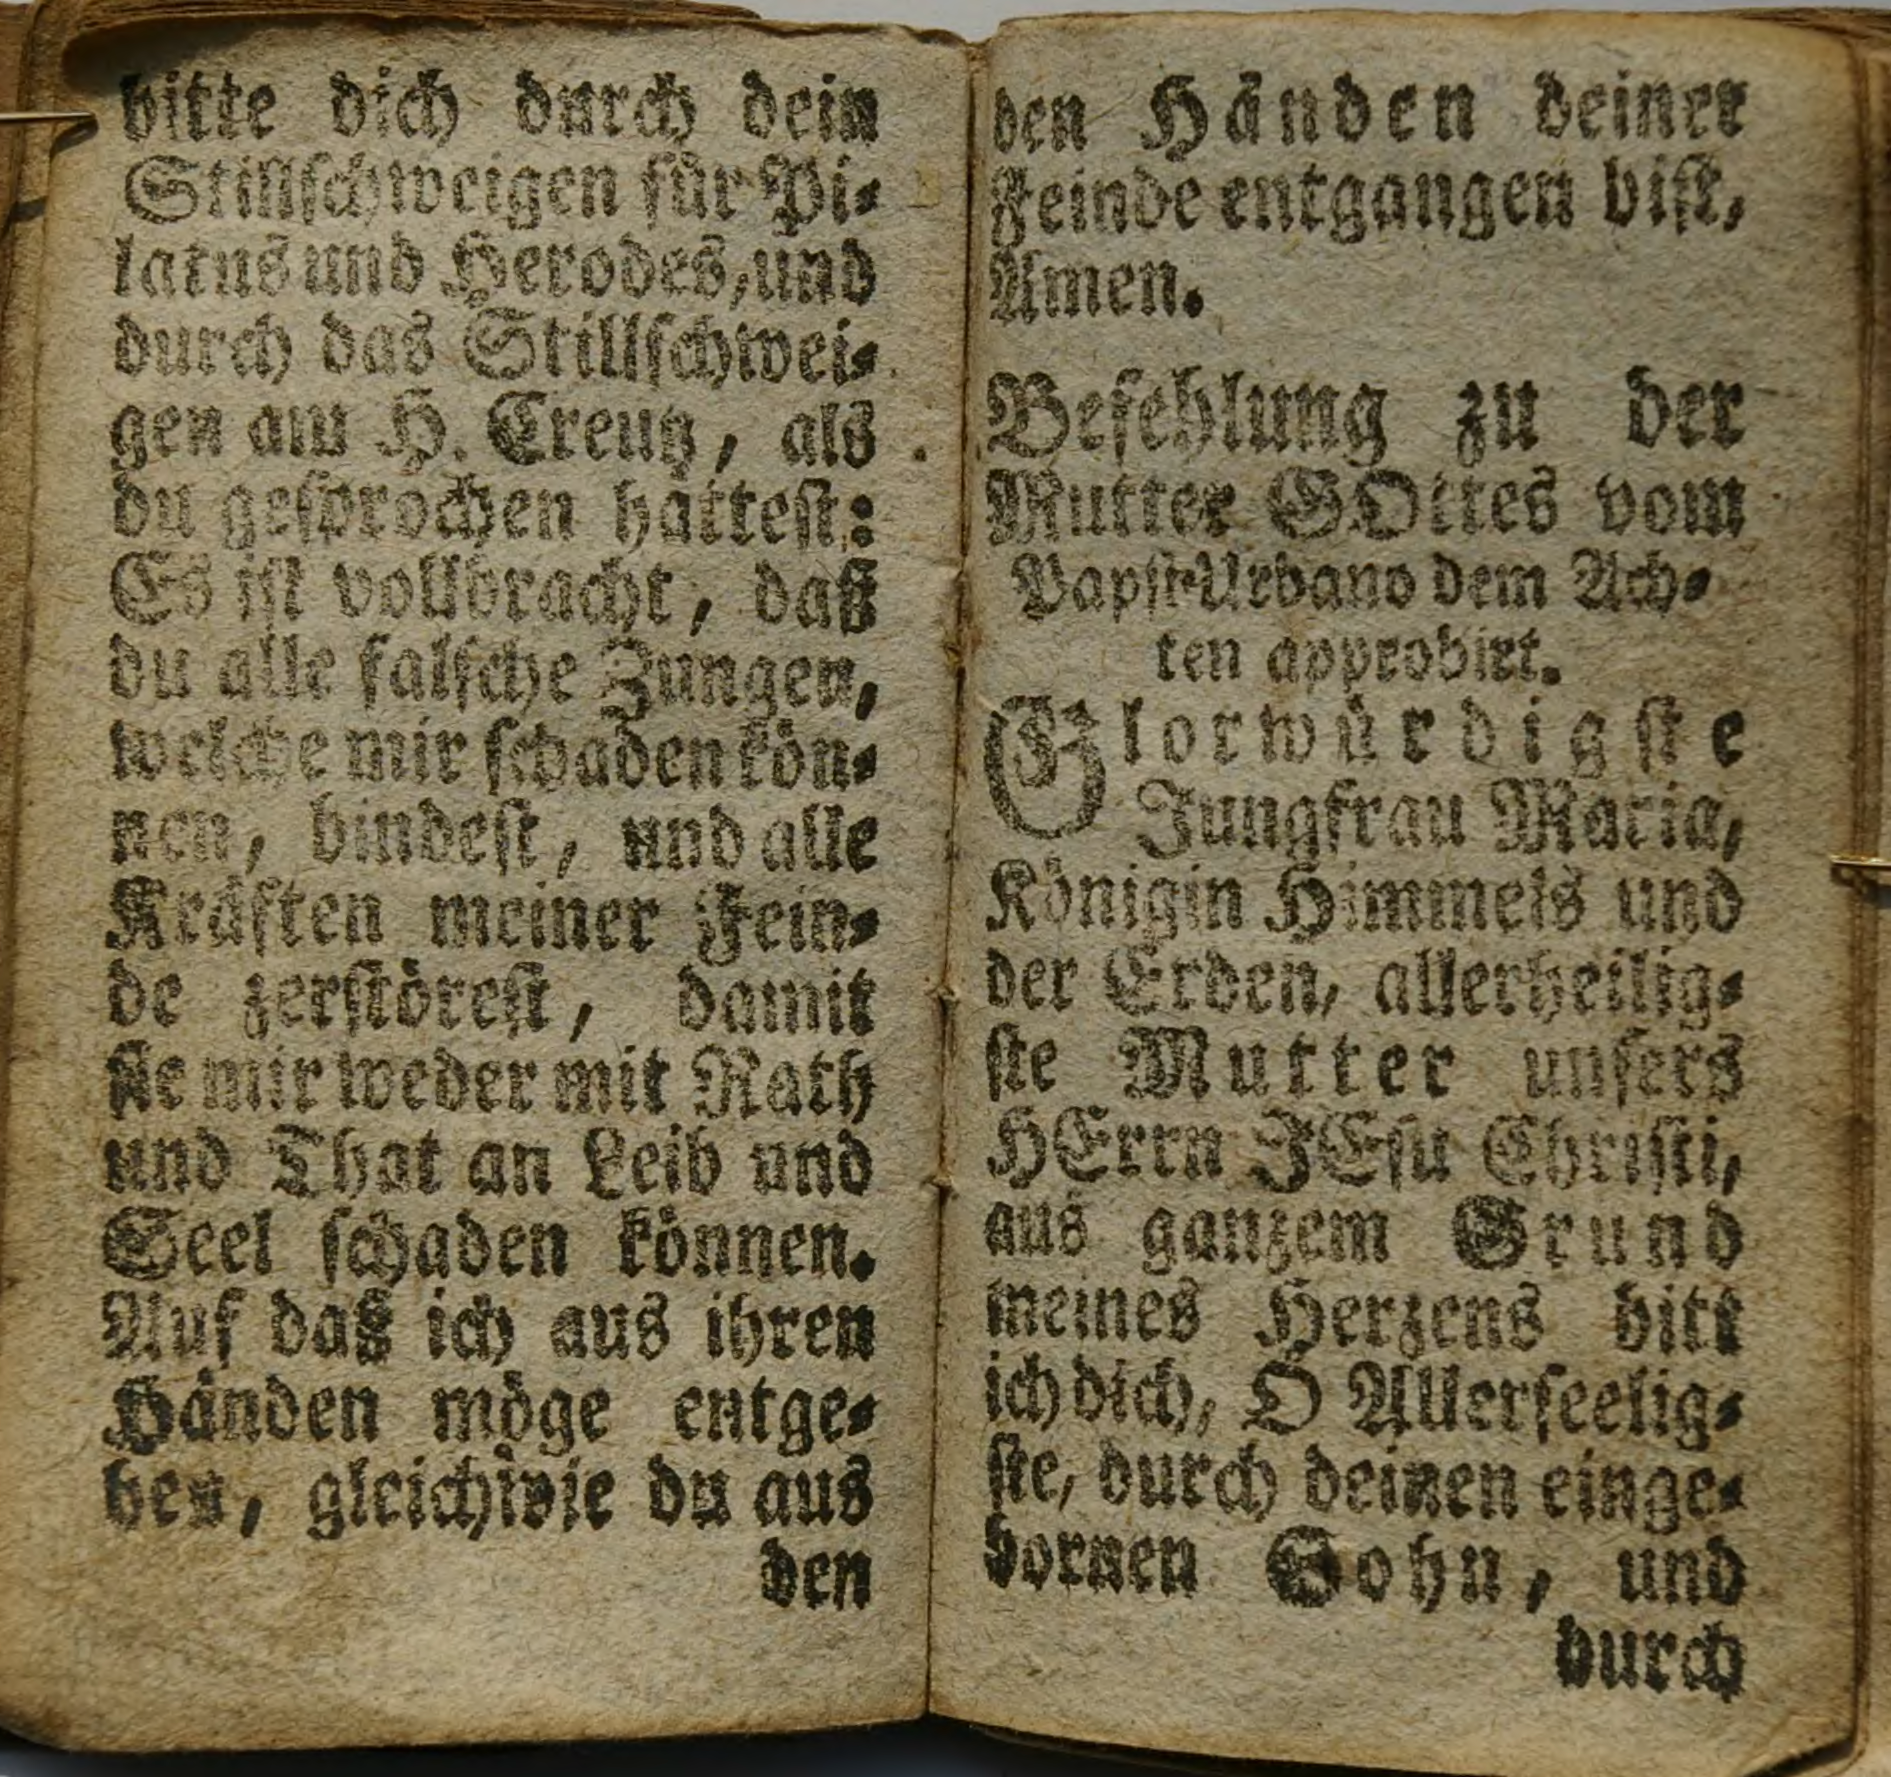 bitte dich durch dein
Stillschweigen für Pi-
latus und Herodes, und
durch das Stillschwei-
gen am H. Creutz, als
du gesprochen hattest:
Es ist vollbracht, daß
du alle falsche Zungen,
welche mir schaden kön-
nen, bindest, und alle
Kräften meiner Fein-
de zerstörest, damit
sie mir weder mit Rath
und That an Leib und
Seel schaden können.
Auf daß ich aus ihren
Händen möge entge-
hen, gleichwie du aus
den
den Händen deiner
Feinde entgangen bist,
Amen.
Befehlung zu der
Mutter GOttes vom
Papst Urbano dem Ach-
ten approbirt.
Glorwürdigste
Jungfrau Maria,
Königin Himmels und
der Erden, allerheilig-
ste Mutter unsers
HErrn JEsu Christi,
aus ganzem Grund
meines Herzens bitt
ich dich, O Allerseelig-
ste, durch deinen einge-
bornen Sohn, und
durch